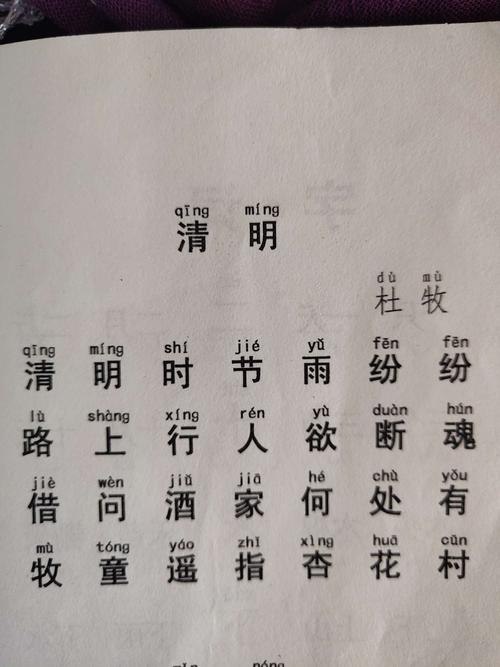 qīng míng
清 明
dù mù
杜 牧
qīng míng shí jié yǔ fēn fēn
清 明 时 节 雨 纷 纷
lù shàng xíng rén yù duàn hún
路 上 行 人 欲 断 魂
jiè wèn jiǔ jiā hé chù yǒu
借 问 酒 家 何 处 有
mù tóng yáo zhǐ xìng huā cūn
牧 童 遥 指 杏 花 村